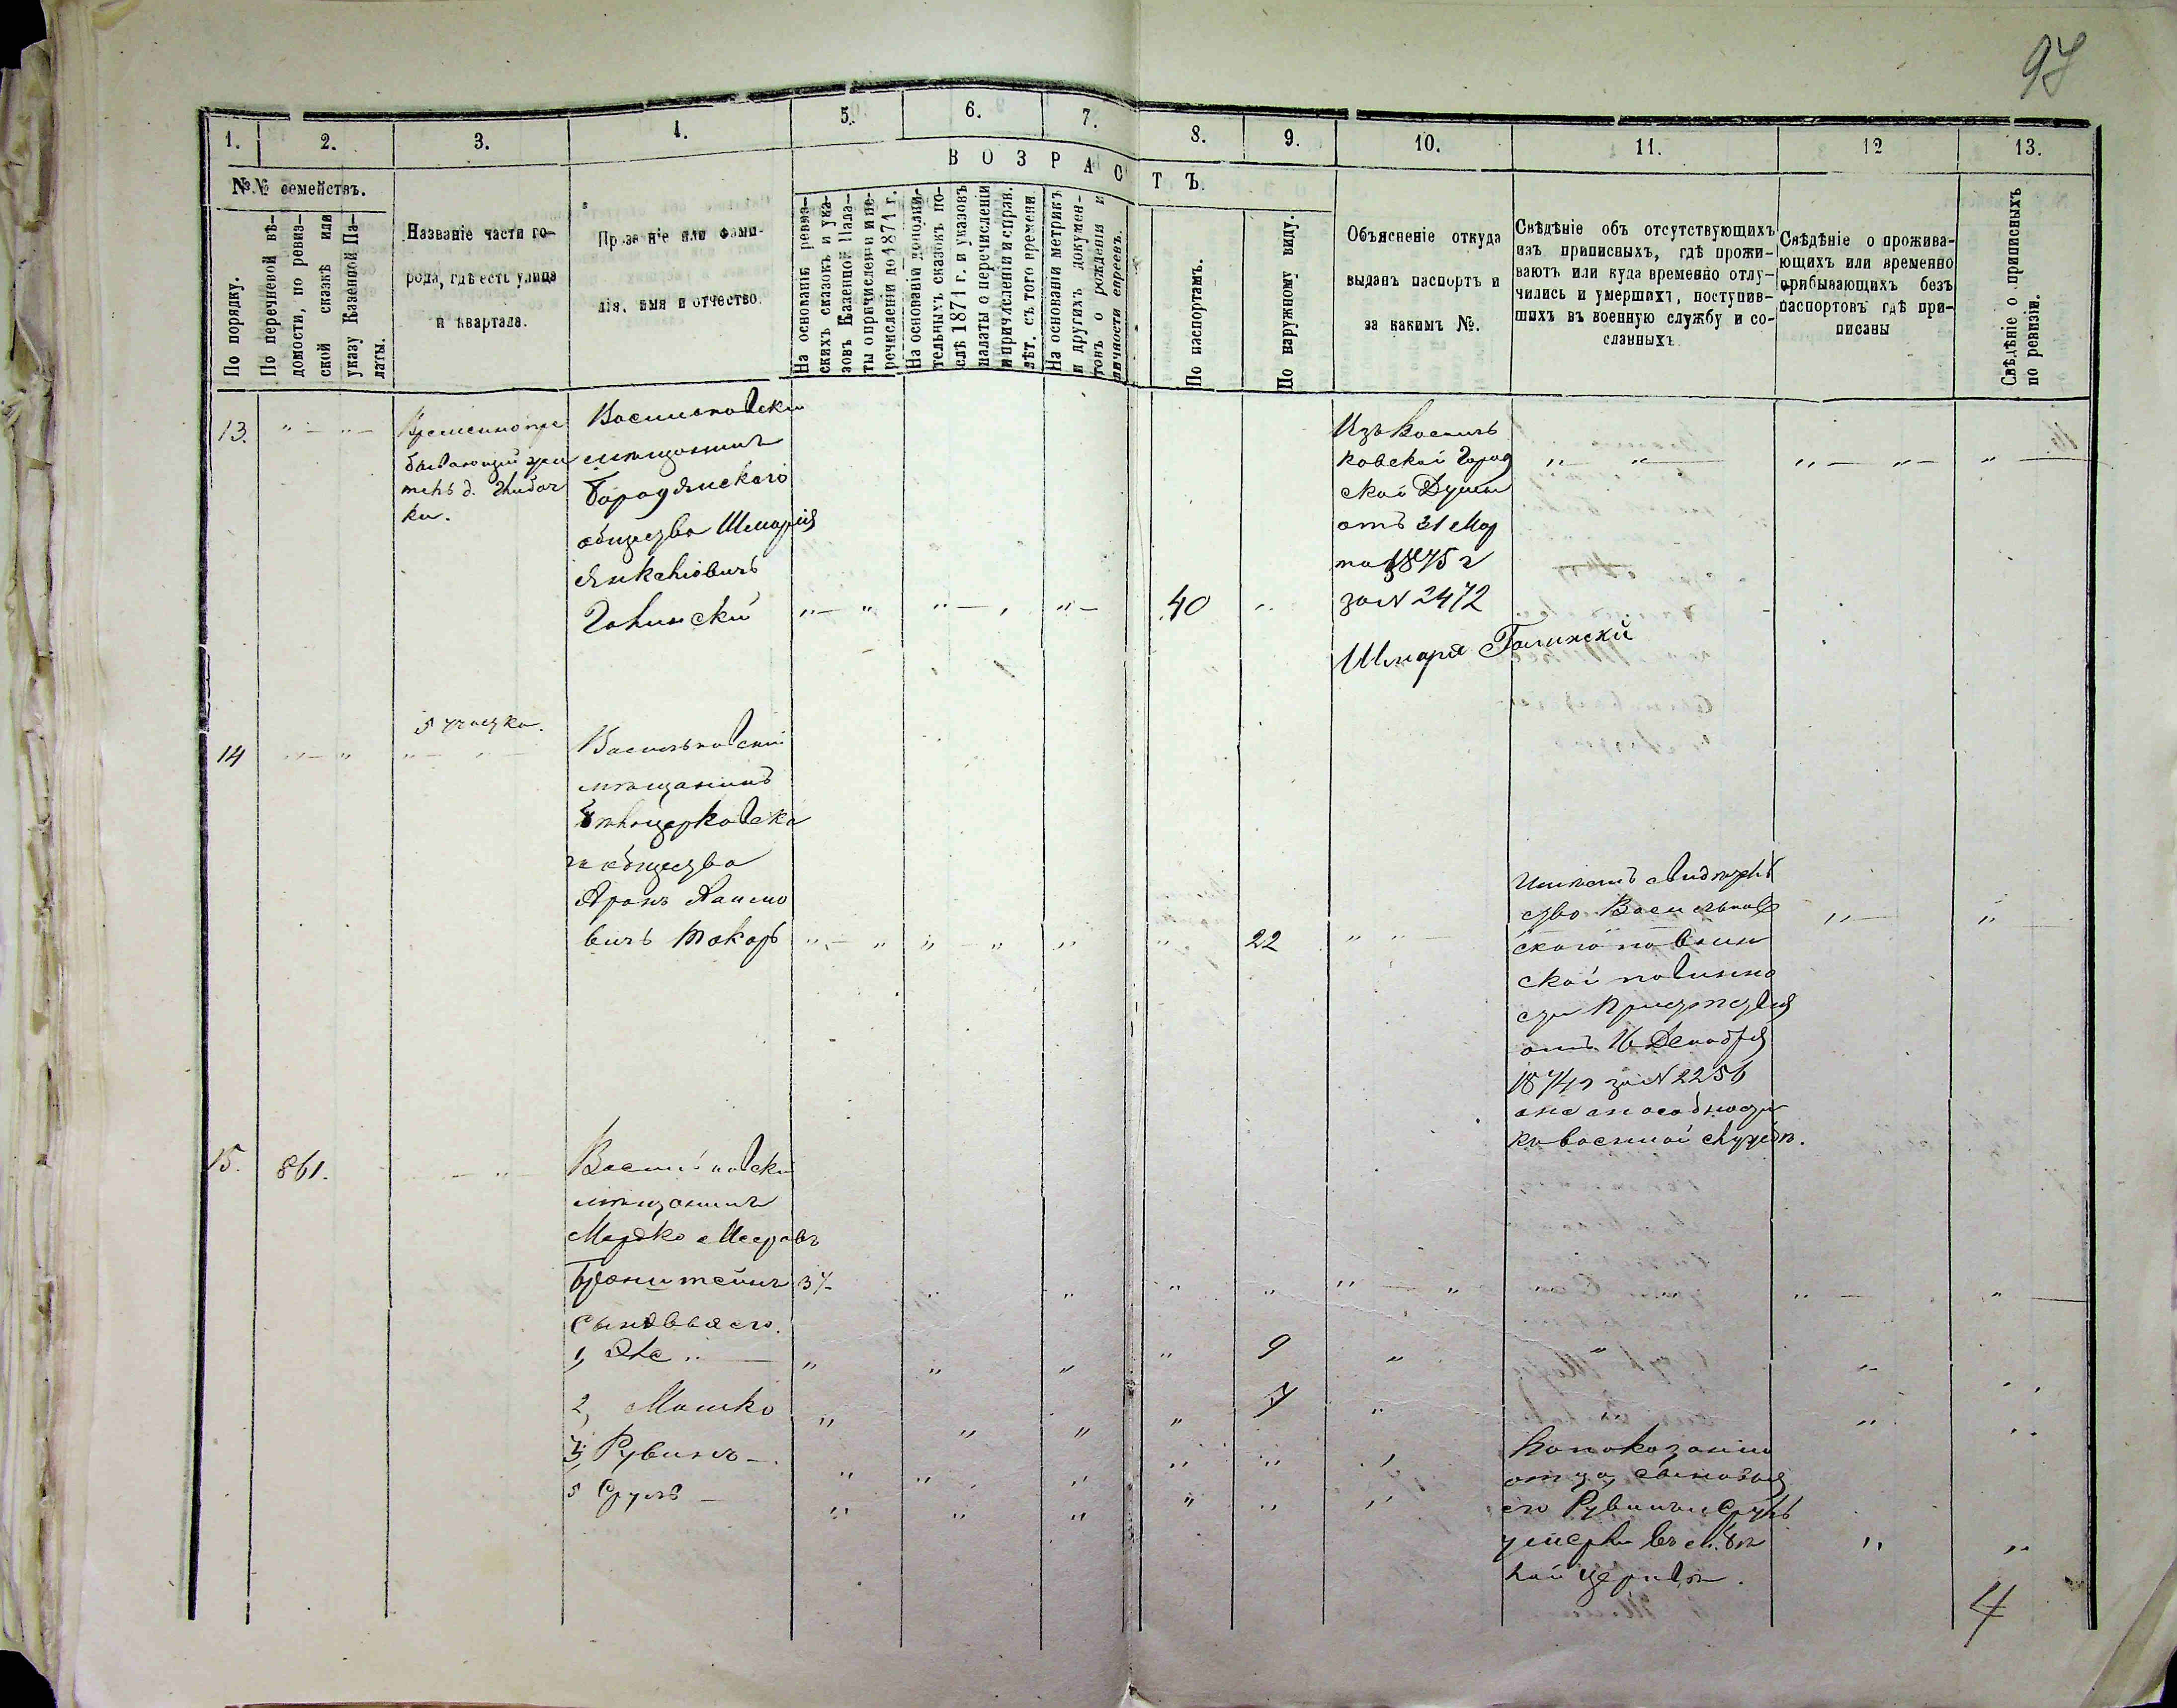 97
1.
2.
3.
4.
5.
6.
7.
8.
9.
10.
11.
12
13.
№№ семействъ.
ВОЗРАСТЪ.
По порядку.
По перечневой вѣ-
домости, по ревиз-
ской сказкѣ или
указу Казенной Па-
латы.
Названіе части го-
рода, гдѣ есть улица
и квартала.
Прозваніе или фами-
лія, имя и отчество.
На основаніи ревиз-
скихъ сказокъ и ука-
зовъ Казенной Пала-
ты о причисленіи и пе-
речисленіи до 1871 г.
На основаніи дополни-
тельныхъ сказокъ по-
слѣ 1871 г. и указовъ
палаты о перечисленіи
и причисленіи исправ.
лѣт. съ того времени.
На основаніи метрикъ
и другихъ докумен-
товъ о рожденіи и
личности евреевъ.
По паспортамъ.
По наружному виду.
Объясненіе откуда
выданъ паспортъ и
за какимъ №.
Свѣдѣніе объ отсутствующихъ
изъ приписныхъ, гдѣ прожи-
ваютъ или куда временно отлу-
чились и умершихъ, поступив-
шихъ въ военную службу и со-
сланныхъ
Свѣдѣніе о прожива-
ющихъ или временно
прибывающихъ безъ
паспортовъ гдѣ при-
писаны
Свѣдѣніе о приписныхъ
по ревизіи.
13.
" — " —
Временно пре
бывающій жи
тель д.
ки.
Васильковски
мѣщанинъ
Бородянскаго
общества Шмарія
Янкеліовичъ
Галински
" — "
" — "
" —
40
"
Изъ Василь
ковской Город
ской Думы
отъ 31 Мар
та 1875 г
за N 2472
Шмаря Галинскій
" — "
" — " —
" —
5 участка.
14
" — "
" — "
Васильковскій
мѣщанинъ
Бѣлоцерковска
го общества
Аронъ
вичъ Токарь
" — "
" — "
"
"
22
" "
Имѣетъ свидѣтель
ство Васильков
скаго по воин
ской повинно
сти Присутствія
отъ 16 Декабря
1874 г за N 2256
о неспособности
къ военной службѣ.
" —
"
15.
861.
— "
Васильковски
мѣщанинъ
Мордко Мееровъ
Бронштейнъ
37
"
"
"
"
" — "
" —
"
Сыновья его.
1, Эле " —
"
"
"
"
9
"
"
"
2, Мошко
"
"
"
"
7
"
"
3, Рувинъ —
"
"
"
"
"
"
5 Сруль —
"
"
"
"
"
"
По показанію
отца, сыновья
его Рувинъ и Сруль
умерли въ м. Бѣ
лой Церквѣ.
"
"
4